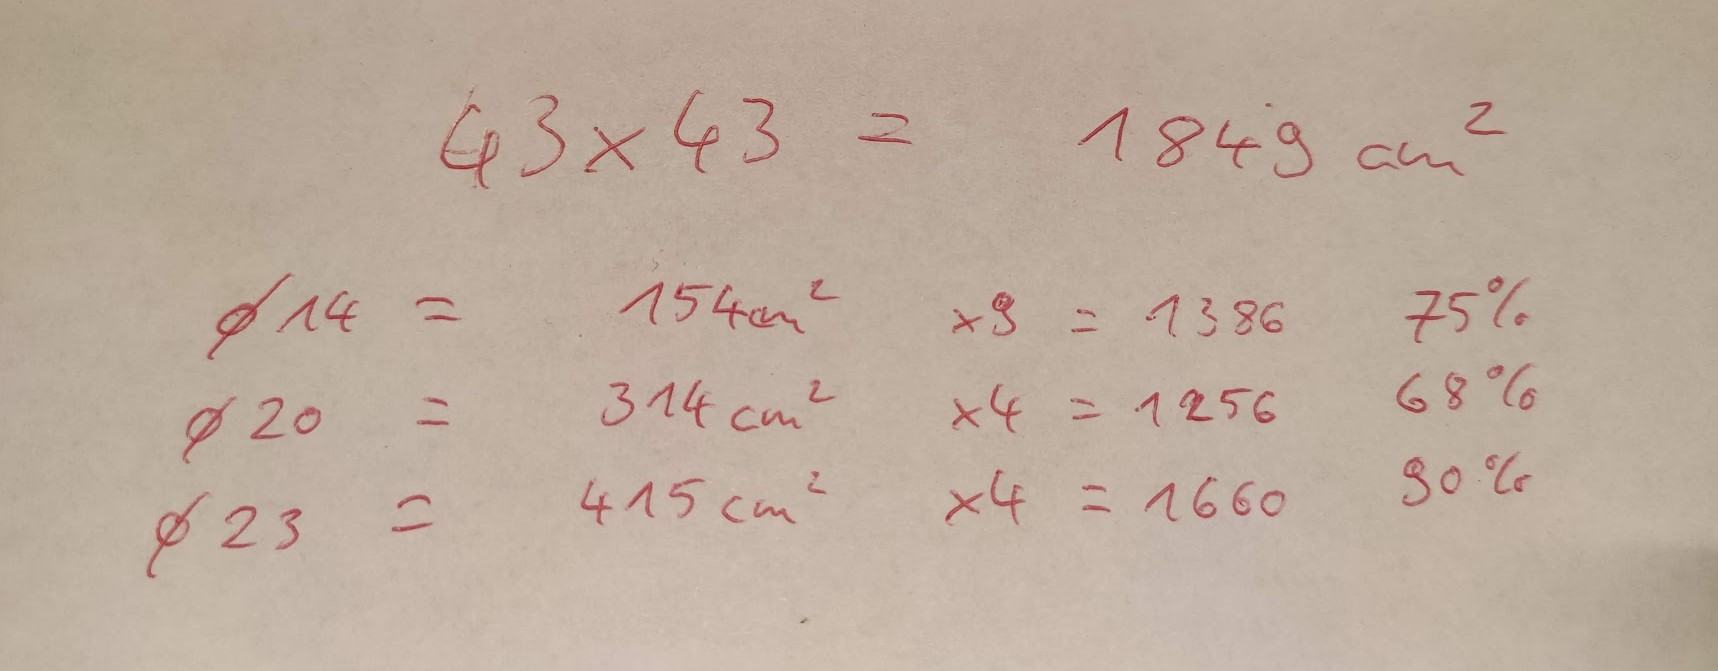 43 x 43 = 1849 cm²
ø 14 = 154 cm² x9 = 1386 75%
ø 20 = 314 cm² x4 = 1256 68%
ø 23 = 415 cm² x4 = 1660 90%